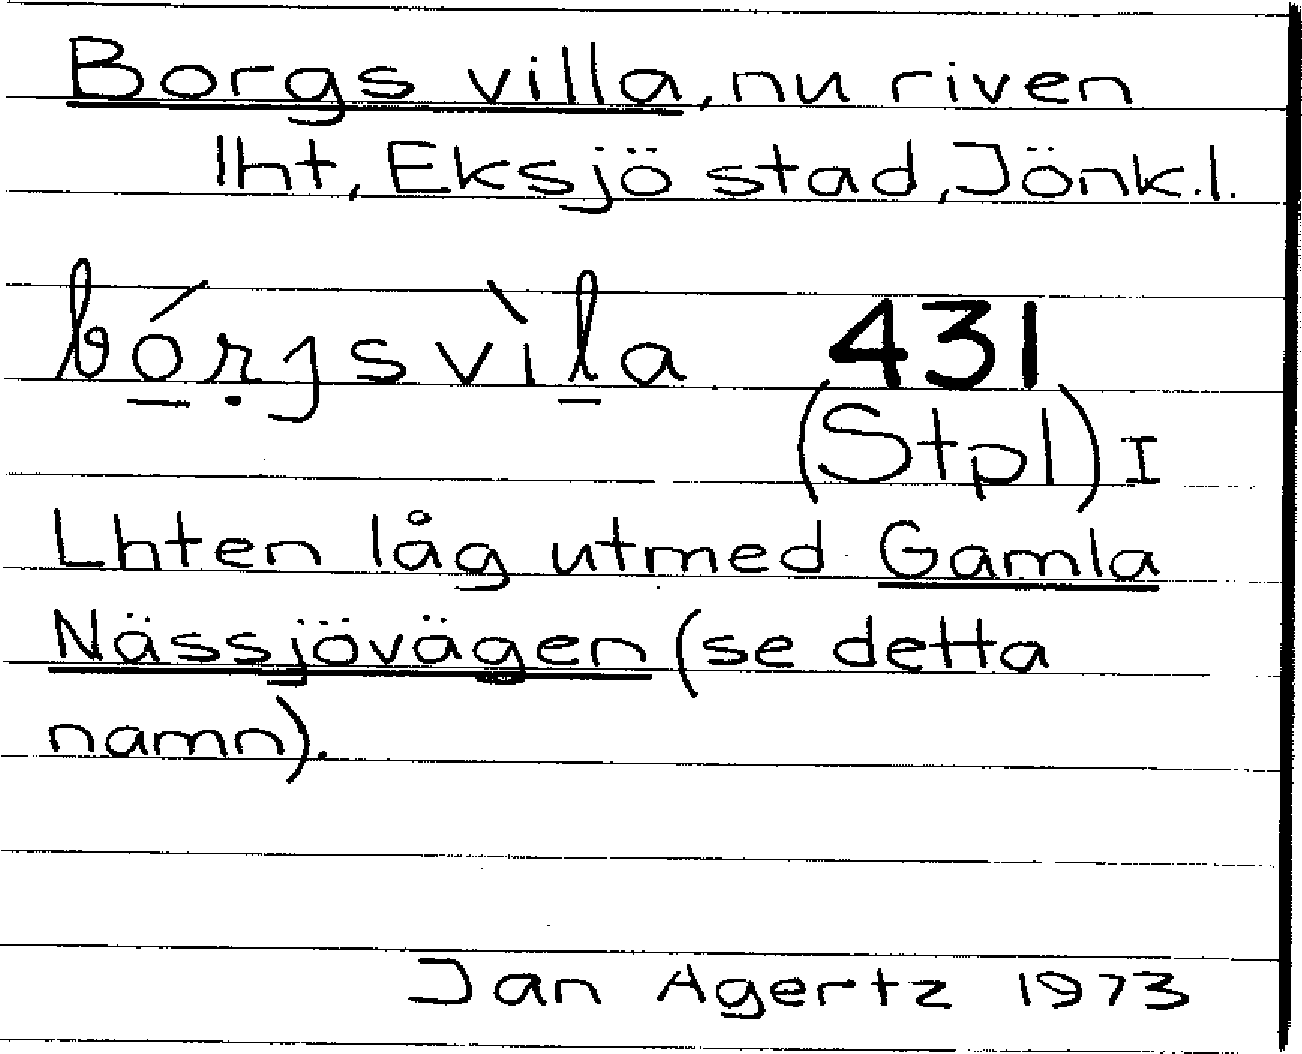 Borgs villa, nu riven
lht, Eksjö stad, Jönk.l.
bó̲rɀ̣ȷsvìl̲a 431
(Stpl) I
Lhten låg utmed Gamla
Nässjövägen (se detta
namn).
Jan Agertz 1973